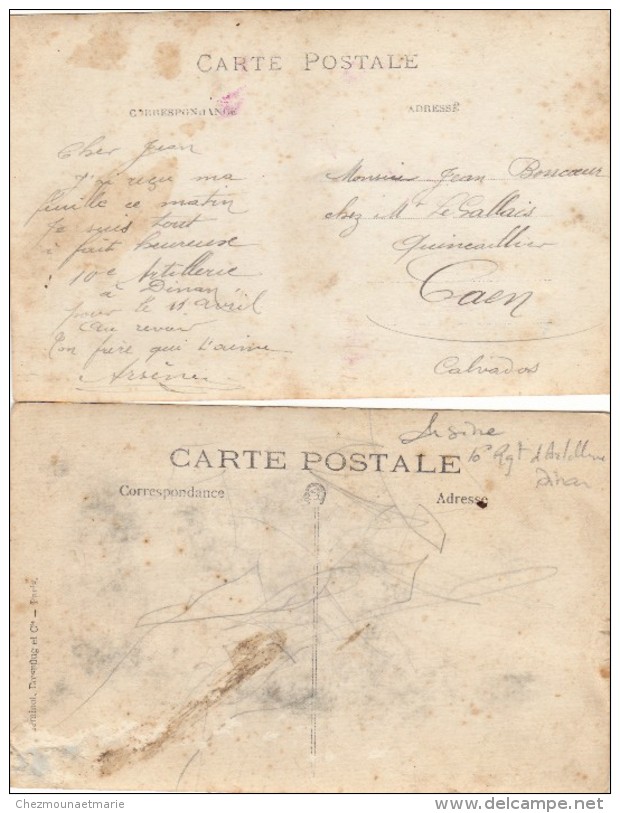 CARTE POSTALE
CORRESPONDANCE
ADRESSE
Cher Jean
J'ai reçu ma
feuille ce matin
Je suis tout
à fait heureuse
10e Artillerie
à Dinan
pour le 11 avril
au revoir
Ton frère qui t'aime
Arsène
Monsieur Jean Bonsoeur
chez Mr Le Gallais
Quincaillier
Caen
Calvados
Arsène
10e Rgt d'Artillerie
Dinan
CARTE POSTALE
Correspondance
Adresse
et Cie — Paris.
Chezmounaetmarie
delcampe.net